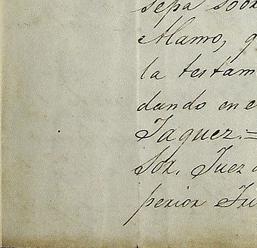 sepa sobr
Alamo, q
la testam
dando en e
Jaquez.=
Sor. Juez d
perior Ju